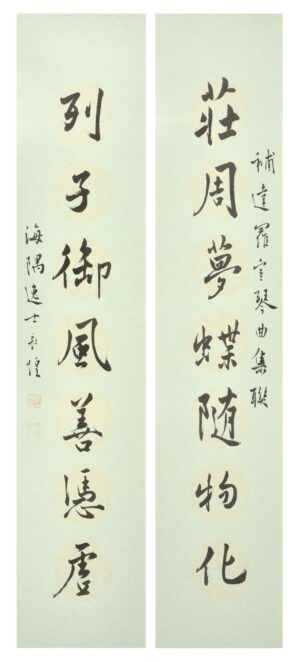 補達羅室琴曲集聯
莊周夢蝶随物化
列子御風善憑虛
海隅逸士煌